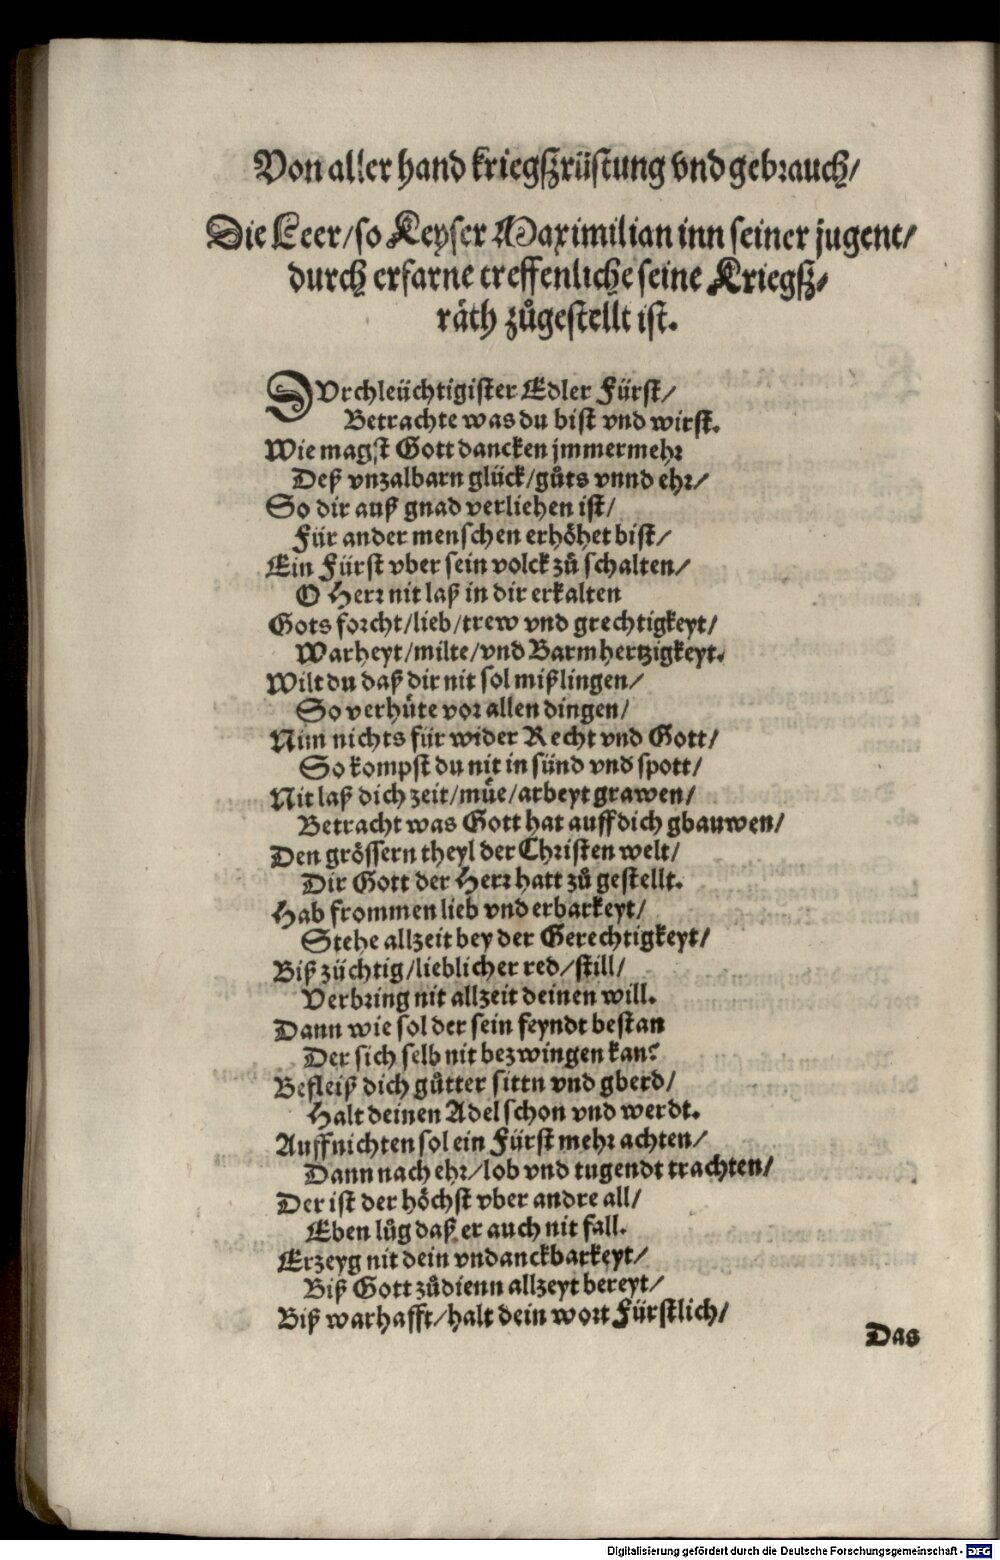 Von aller hand kriegßrüstung vnd gebrauch/
Die Leer/so Keyser Maximilian inn seiner jugent/
durch erfarne treffenliche seine Kriegß⸗
räth zůgestellt ist.
DVrchleüchtigister Edler Fürst/
Betrachte was du bist vnd wirst.
Wie magst Gott dancken jmmermehr
Deß vnzalbarn glück/gůts vnnd ehr/
So dir auß gnad verliehen ist/
Für ander menschen erhöhet bist/
Ein Fürst vber sein volck zů schalten/
O Herr nit laß in dir erkalten
Gots forcht/lieb/trew vnd grechtigkeyt/
Warheyt/milte/vnd Barmhertzigkeyt.
Wilt du daß dir nit sol mißlingen/
So verhüte vor allen dingen/
Nim nichts für wider Recht vnd Gott/
So kompst du nit in sünd vnd spott/
Nit laß dich zeit/müe/arbeyt grawen/
Betracht was Gott hat auff dich gbauwen/
Den grössern theyl der Christen welt/
Dir Gott der Herr hatt zů gestellt.
Hab frommen lieb vnd erbarkeyt/
Stehe allzeit bey der Gerechtigkeyt/
Biß züchtig/lieblicher red/still/
Verbring nit allzeit deinen will.
Dann wie sol der sein feyndt bestan
Der sich selb nit bezwingen kan?
Befleiß dich gůtter sittn vnd gberd/
Halt deinen Adel schon vnd werdt.
Auff nichten sol ein Fürst mehr achten/
Dann nach ehr/lob vnd tugendt trachten/
Der ist der höchst vber andre all/
Eben lůg daß er auch nit fall.
Erzeyg nit dein vndanckbarkeyt/
Biß Gott zůdienn allzeyt bereyt/
Biß warhafft/halt dein wort Fürstlich/
Das
Digitalisierung gefördert durch die Deutsche Forschungsgemeinschaft - DFG